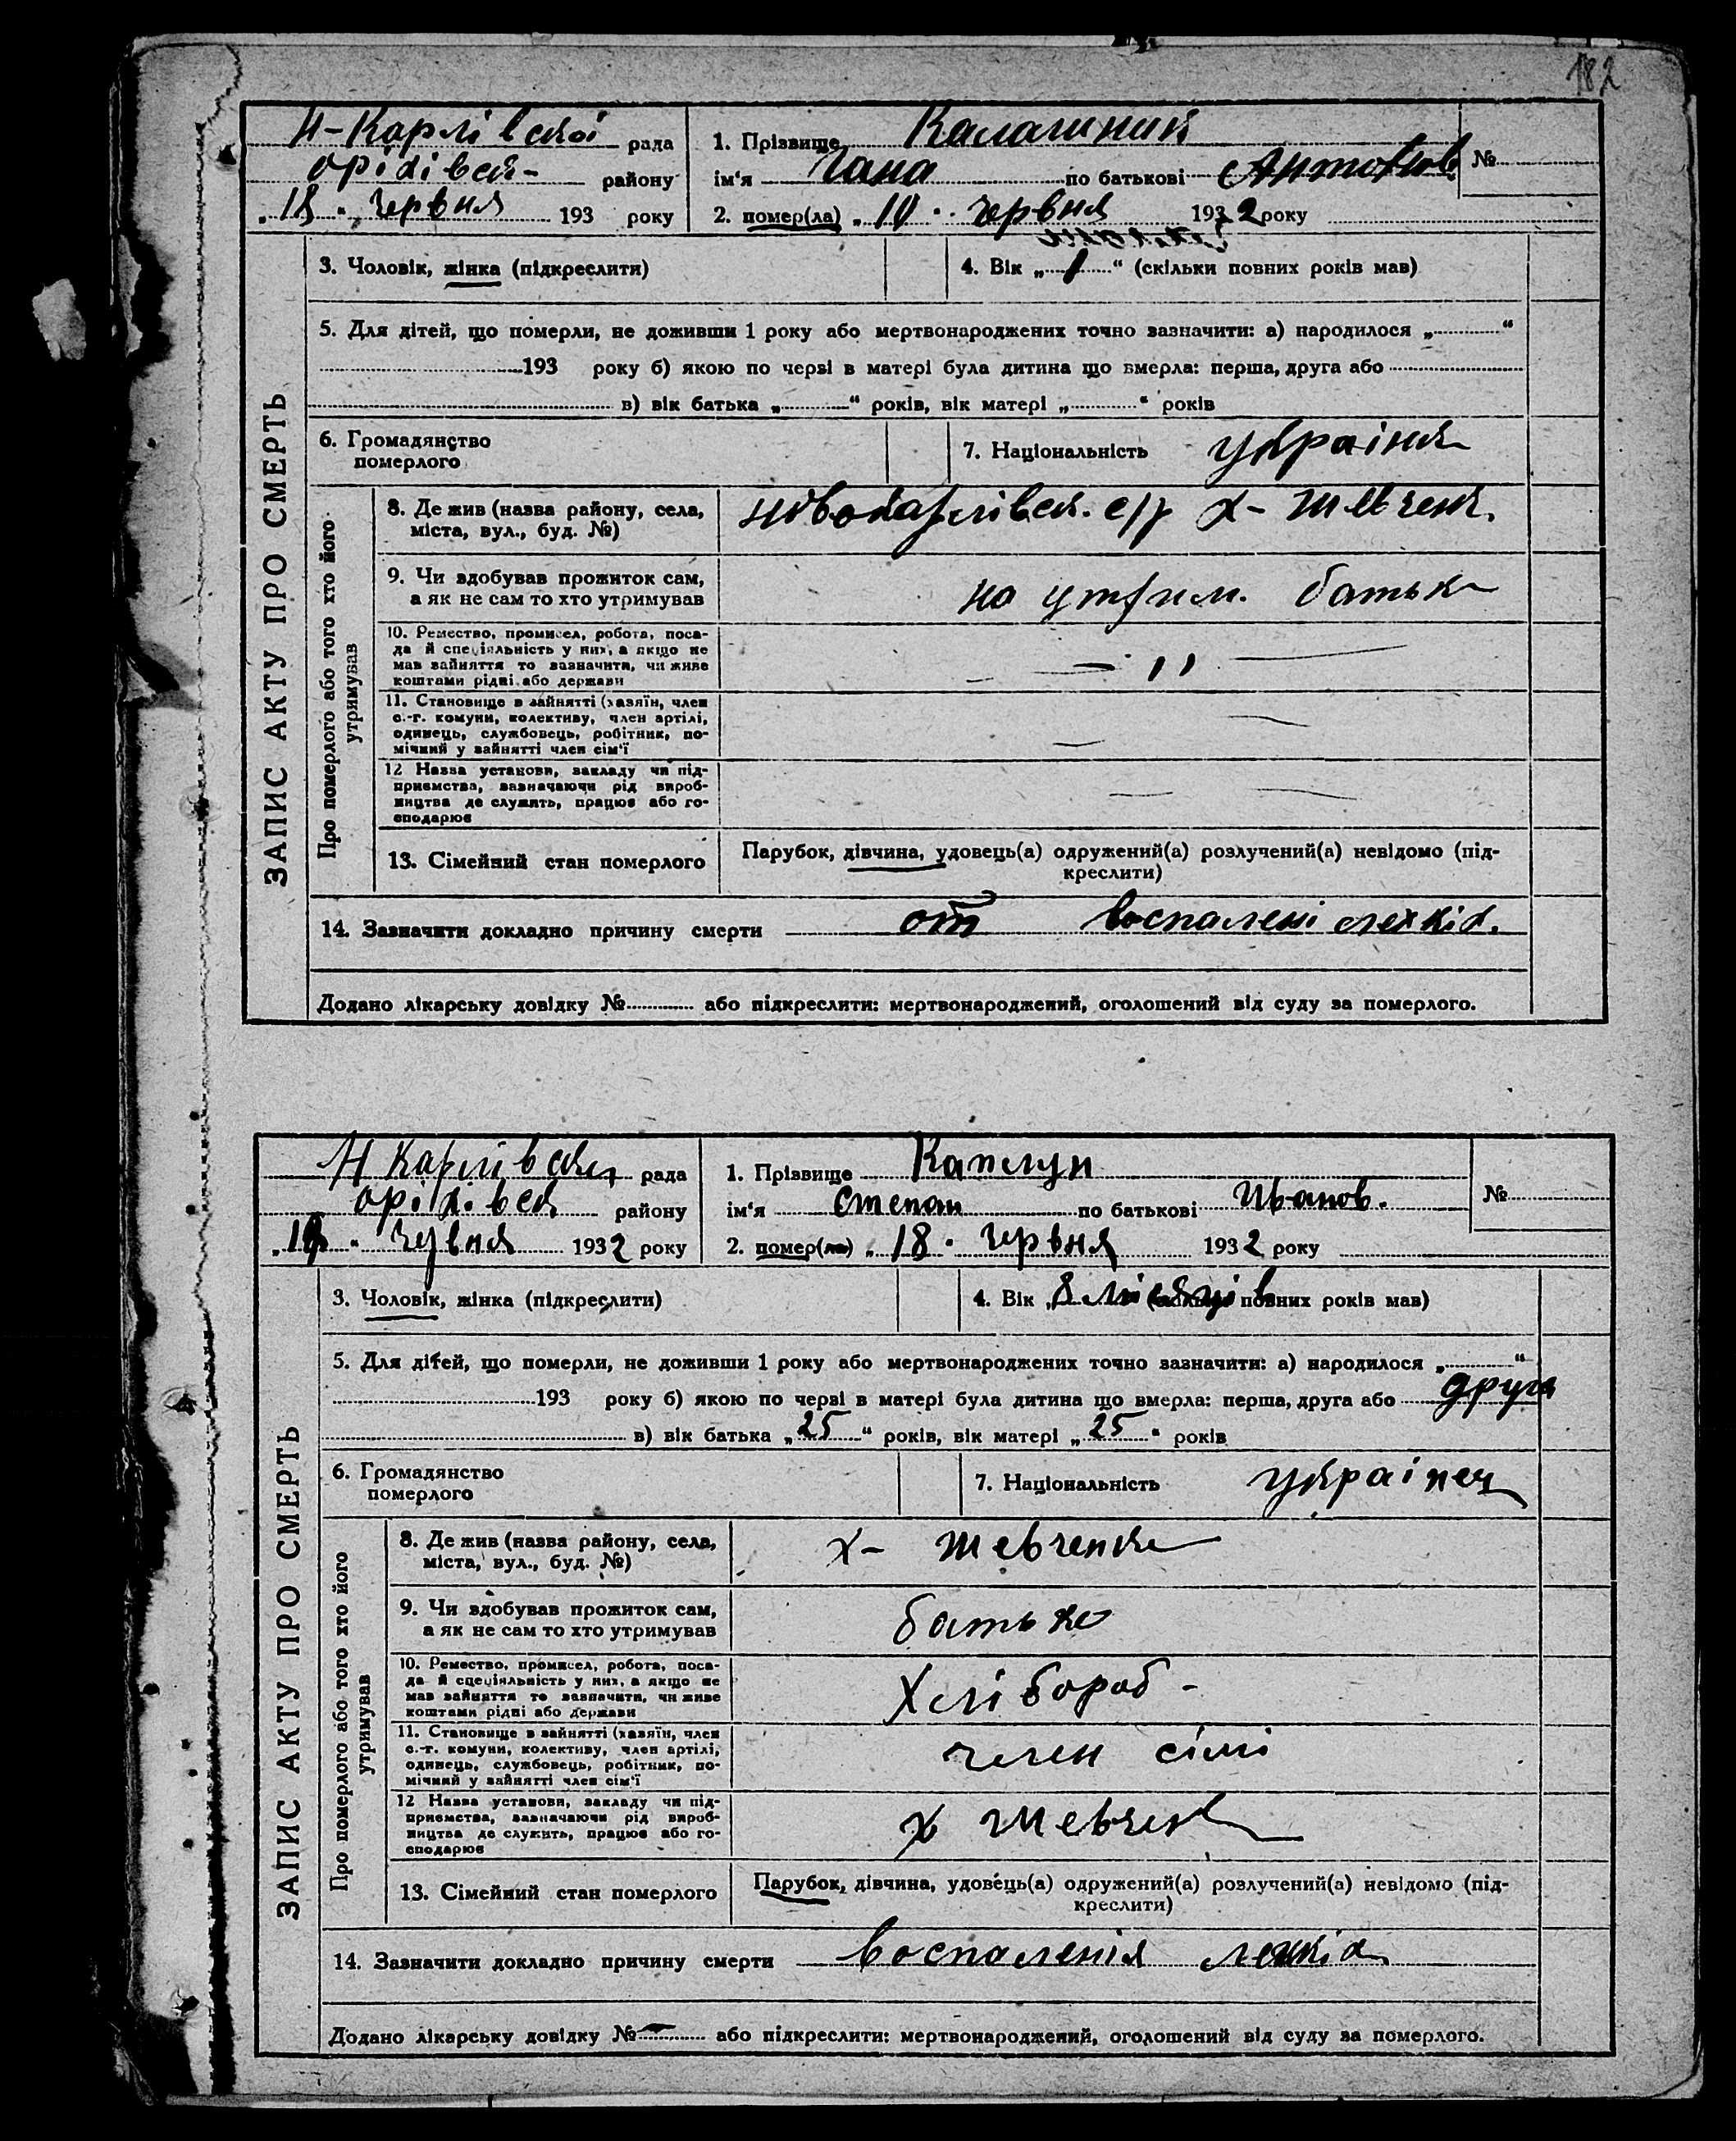 182
Н-Карлівской рада
оріхівск- району
„18" червня 193 року
1. Прізвище Калашник
ім'я Гана по батькові Антонов
№
2. помер(ла) „10" червня 1932 року
3. Чоловік, жінка (підкреслити)
4. Вік „1" (скільки повних років мав)
5. Для дітей, що померли, не доживши 1 року або мертвонароджених точно зазначити: а) народилося „ "
193 року б) якою по черзі в матері була дитина що вмерла: перша, друга або
в) вік батька „ " років, вік матері „ " років
6. Громадянство
померлого
7. Національність українк
ЗАПИС АКТУ ПРО СМЕРТЬ
Про померлого або того хто його
утримував
8. Де жив (назва району, села,
міста, вул., буд. №)
новокарлівск. с/р х- Шевченк.
9. Чи здобував прожиток сам,
а як не сам то хто утримував
на утрим. батька
10. Ремество, промисел, робота, поса-
да й спеціяльність у них, а якщо не
мав зайняття то зазначити, чи живе
коштами рідні або держави
— " —
11. Становище в зайнятті (хазяїн, член
с.-г. комуни, колективу, член артілі,
одинець, службовець, робітник, по-
мічний у зайнятті член сім'ї
— —
12 Назва установи, закладу чи під-
приємства, зазначаючи рід вироб-
ництва де служить, працює або го-
сподарює
— — —
13. Сімейний стан померлого
Парубок, дівчина, удовець(а) одружений(а) розлучений(а) невідомо (під-
креслити)
14. Зазначити докладно причину смерти от воспалені лехкіх.
Додано лікарську довідку № або підкреслити: мертвонароджений, оголошений від суду за померлого.
Н Карлівская рада
оріхівск району
„19" червня 1932 року
1. Прізвище Каплун
ім'я степан по батькові Иванов.
№
2. помер(ла) „18" червня 1932 року
3. Чоловік, жінка (підкреслити)
4. Вік „8 місяців (скільки повних років мав)
5. Для дітей, що померли, не доживши 1 року або мертвонароджених точно зазначити: а) народилося „ "
193 року б) якою по черзі в матері була дитина що вмерла: перша, друга або друга
в) вік батька „25" років, вік матері „25" років
6. Громадянство
померлого
7. Національність українец
ЗАПИС АКТУ ПРО СМЕРТЬ
Про померлого або того хто його
утримував
8. Де жив (назва району, села,
міста, вул., буд. №)
х- Шевченка
9. Чи здобував прожиток сам,
а як не сам то хто утримував
батько
10. Ремество, промисел, робота, поса-
да й спеціяльність у них, а якщо не
мав зайняття то зазначити, чи живе
коштами рідні або держави
Хлібороб -
11. Становище в зайнятті (хазяїн, член
с.-г. комуни, колективу, член артілі,
одинець, службовець, робітник, по-
мічний у зайнятті член сім'ї
член сімі
12 Назва установи, закладу чи під-
приємства, зазначаючи рід вироб-
ництва де служить, працює або го-
сподарює
х Шевченк
13. Сімейний стан померлого
Парубок, дівчина, удовець(а) одружений(а) розлучений(а) невідомо (під-
креслити)
14. Зазначити докладно причину смерти воспаленія лехкіх
Додано лікарську довідку №— або підкреслити: мертвонароджений, оголошений від суду за померлого.